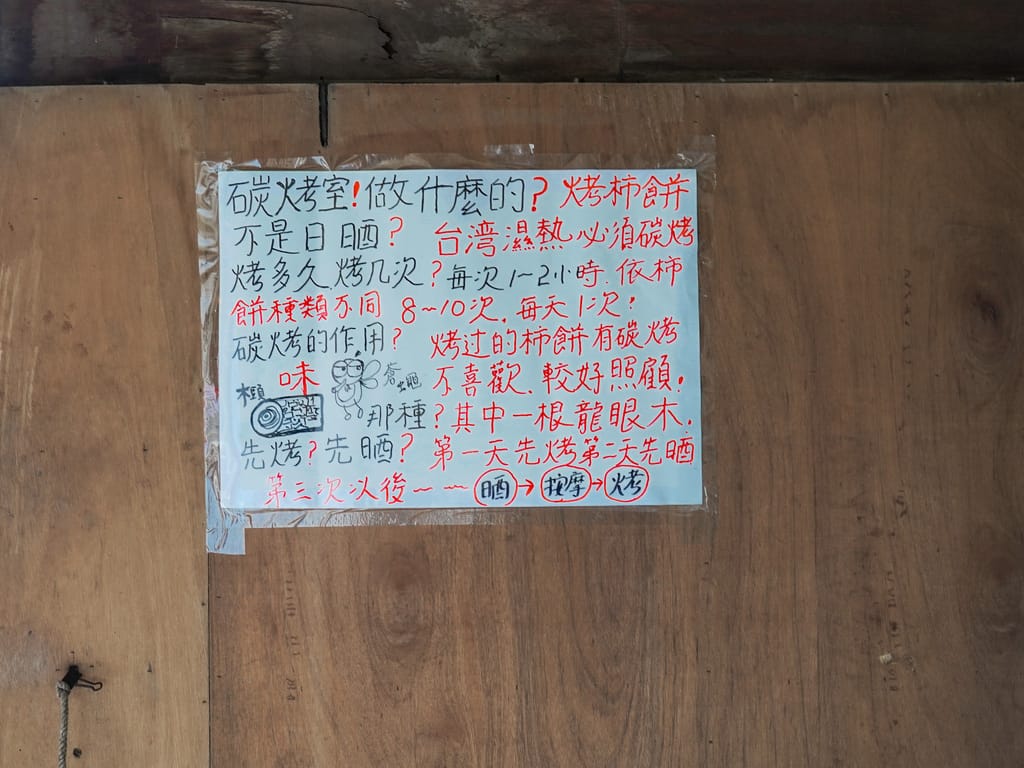 碳烤室!做什麼的?烤柿餅
不是日晒? 台湾濕熱必須碳烤
烤多久.烤几次?每次1~2小時.依柿
餅種類不同 8~10次.每天1次!
碳烤的作用? 烤过的柿餅有碳烤
味 蒼蠅 不喜歡.較好照顧!
木頭 那種?其中一根龍眼木.
先烤?先晒? 第一天先烤第二天先晒
第三次以後~~晒→按摩→烤